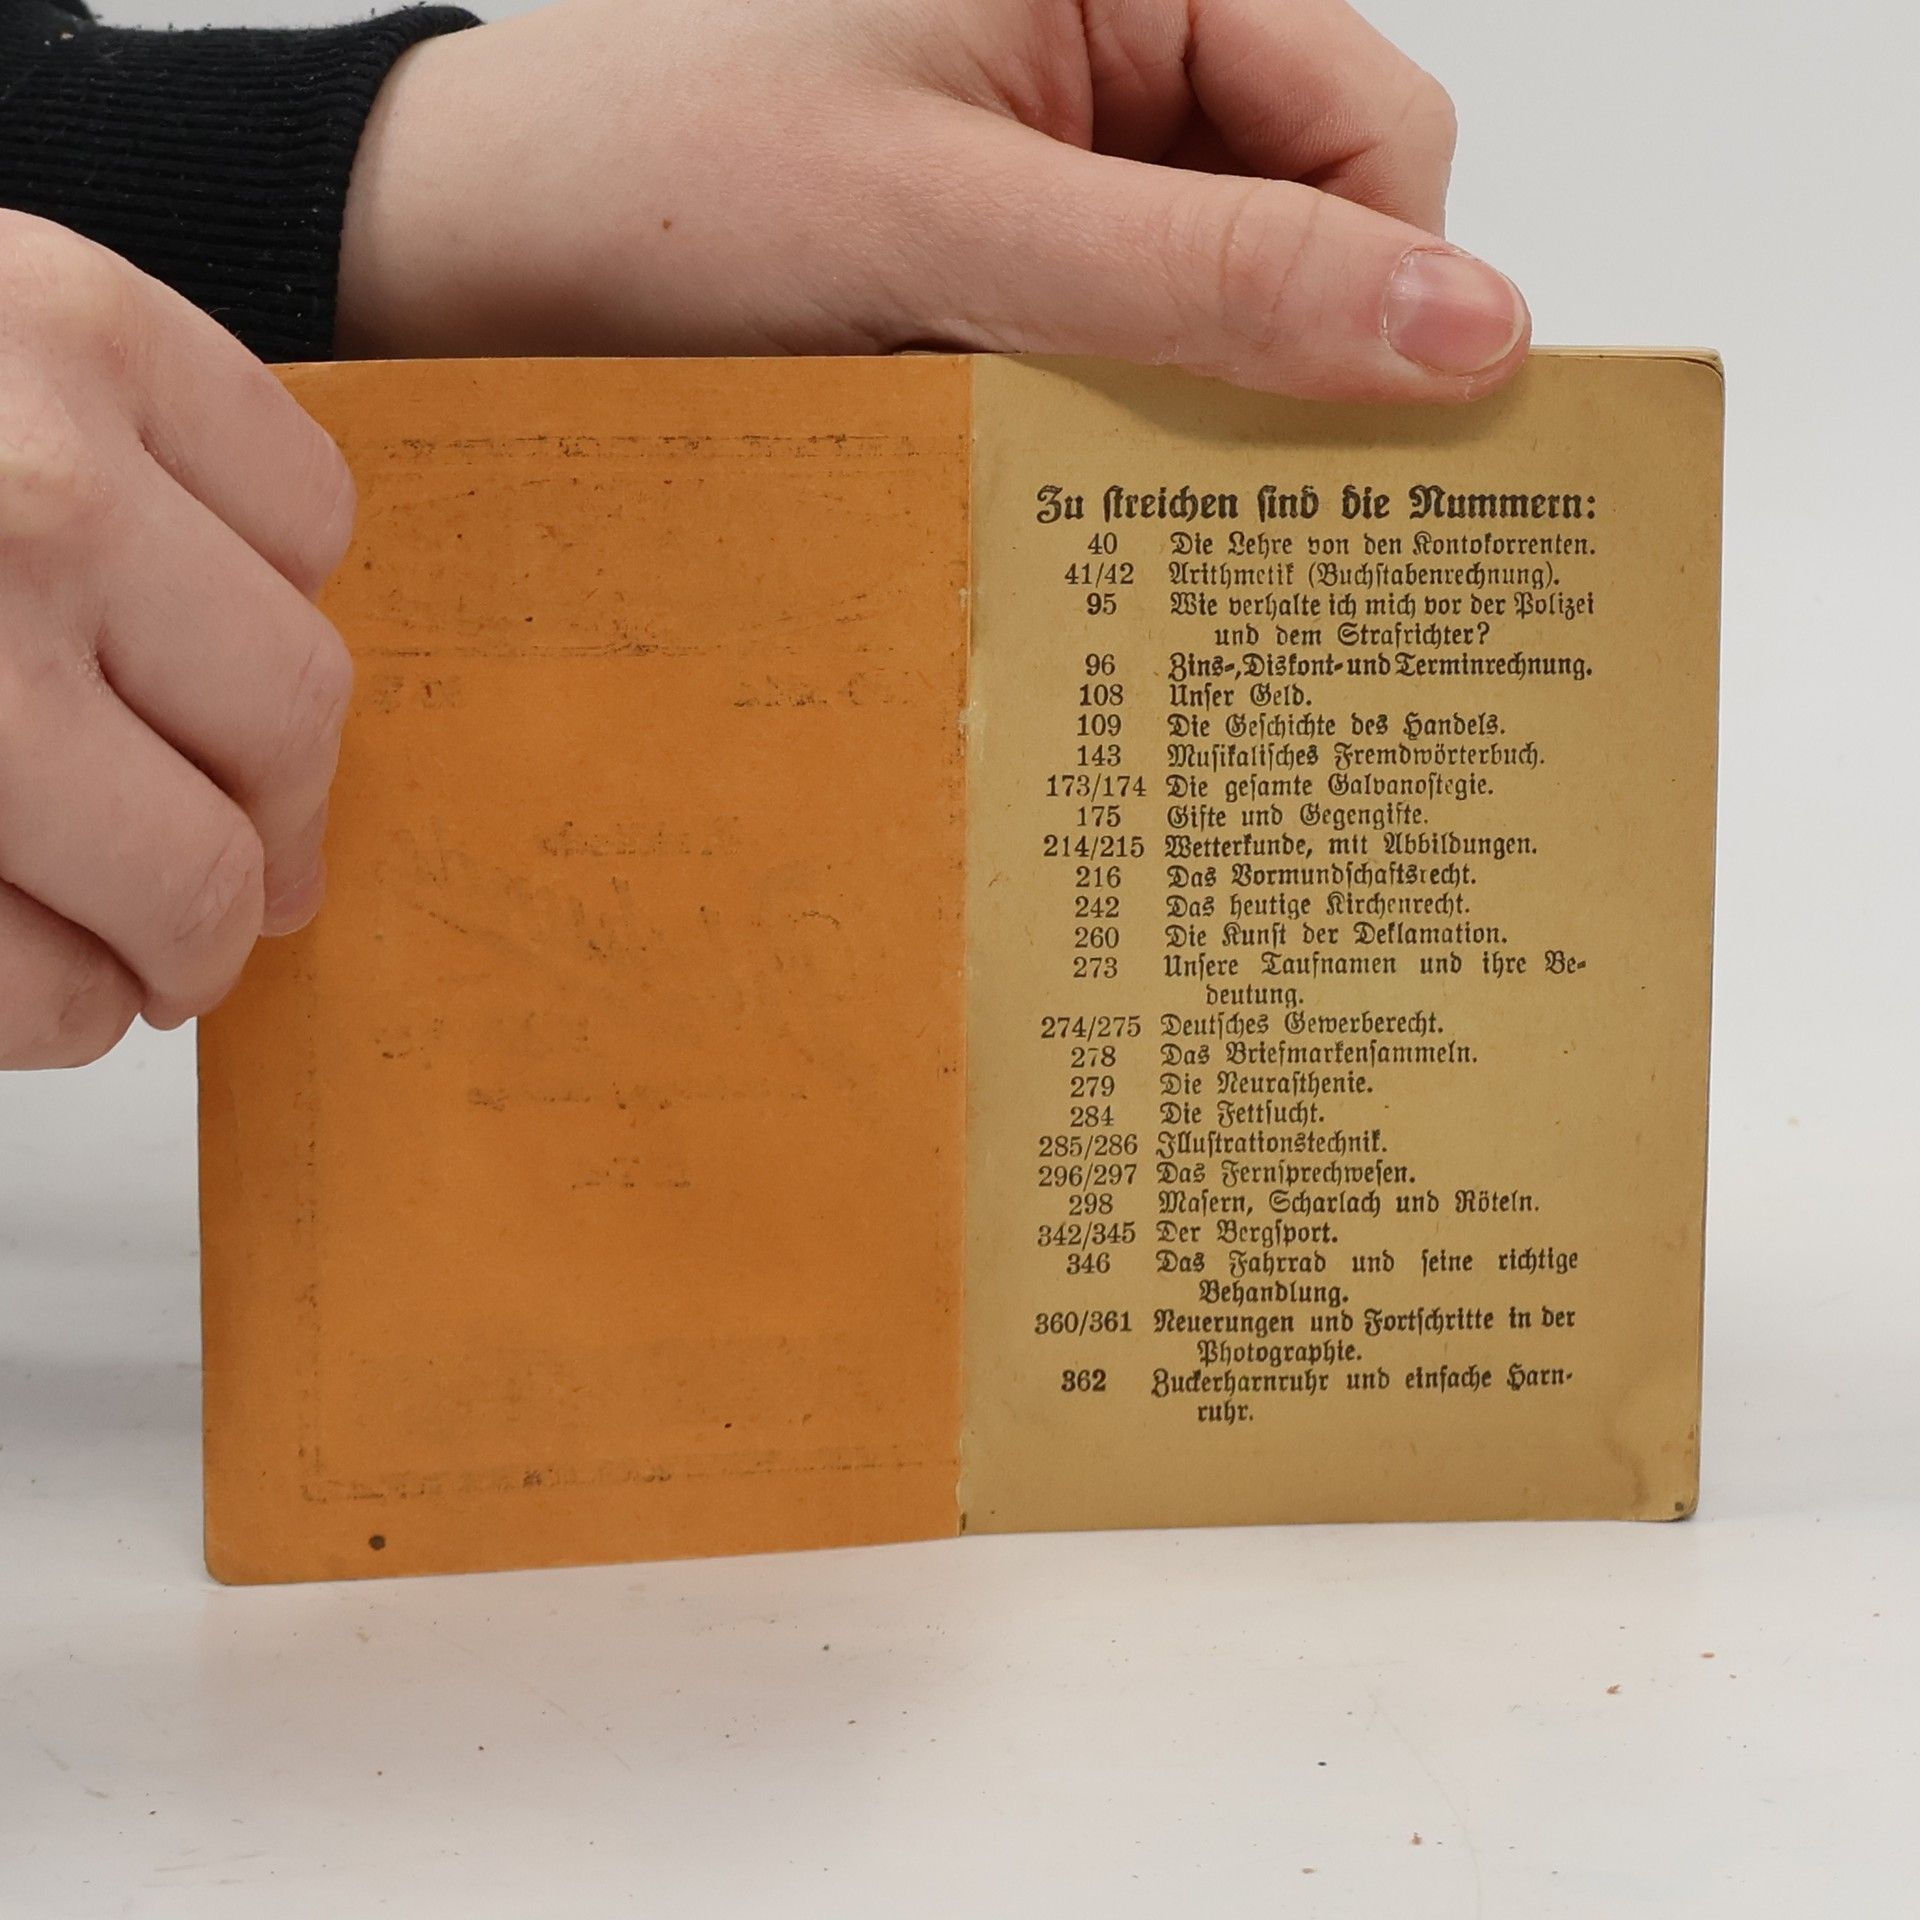 Zu streichen sind die Nummern:
40 Die Lehre von den Kontokorrenten.
41/42 Arithmetik (Buchstabenrechnung).
95 Wie verhalte ich mich vor der Polizei
und dem Strafrichter?
96 Zins-, Diskont- und Terminrechnung.
108 Unser Geld.
109 Die Geschichte des Handels.
143 Musikalisches Fremdwörterbuch.
173/174 Die gesamte Galvanostegie.
175 Gifte und Gegengifte.
214/215 Wetterkunde, mit Abbildungen.
216 Das Vormundschaftsrecht.
242 Das heutige Kirchenrecht.
260 Die Kunst der Deklamation.
273 Unsere Taufnamen und ihre Be-
deutung.
274/275 Deutsches Gewerberecht.
278 Das Briefmarkensammeln.
279 Die Neurasthenie.
284 Die Fettsucht.
285/286 Illustrationstechnik.
296/297 Das Fernsprechwesen.
298 Masern, Scharlach und Röteln.
342/345 Der Bergsport.
346 Das Fahrrad und seine richtige
Behandlung.
360/361 Neuerungen und Fortschritte in der
Photographie.
362 Zuckerharnruhr und einfache Harn-
ruhr.